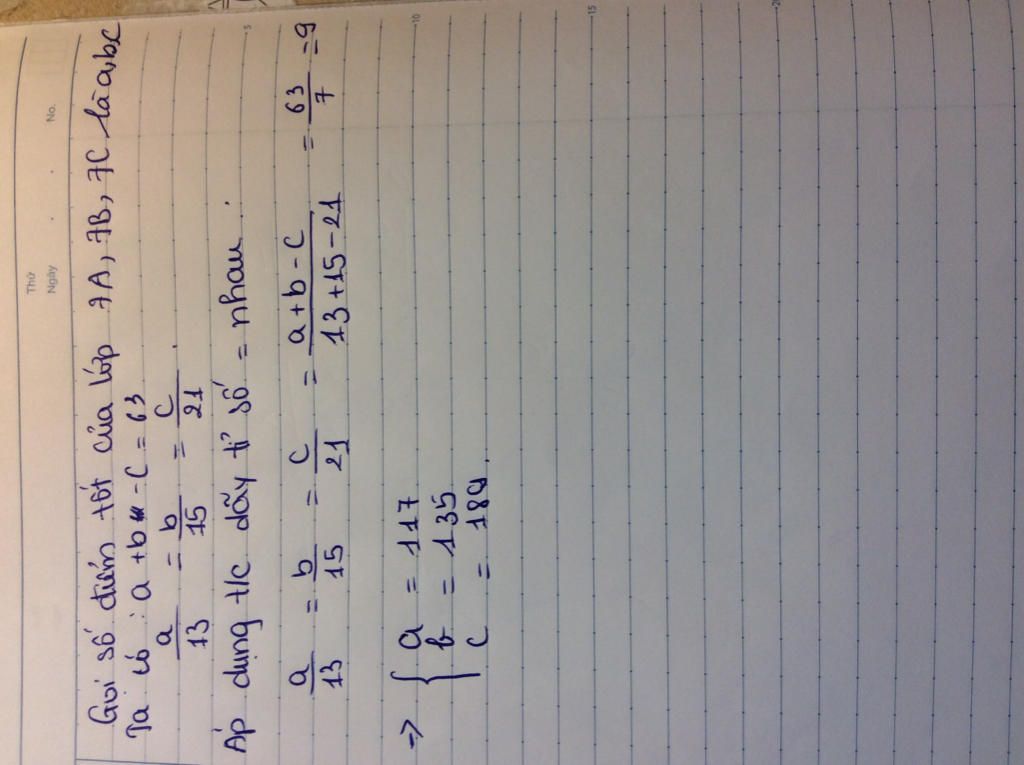 Thứ
Ngày . . No.
Gọi số điểm tốt của lớp 7A, 7B, 7C là a,b,c
Ta có : a + b - c = 63
a/13 = b/15 = c/21 .
Áp dụng t/c dãy tỉ số = nhau :
a/13 = b/15 = c/21 = (a+b-c)/(13+15-21) = 63/7 = 9
=> { a = 117
b = 135
c = 189.
5
10
15
20